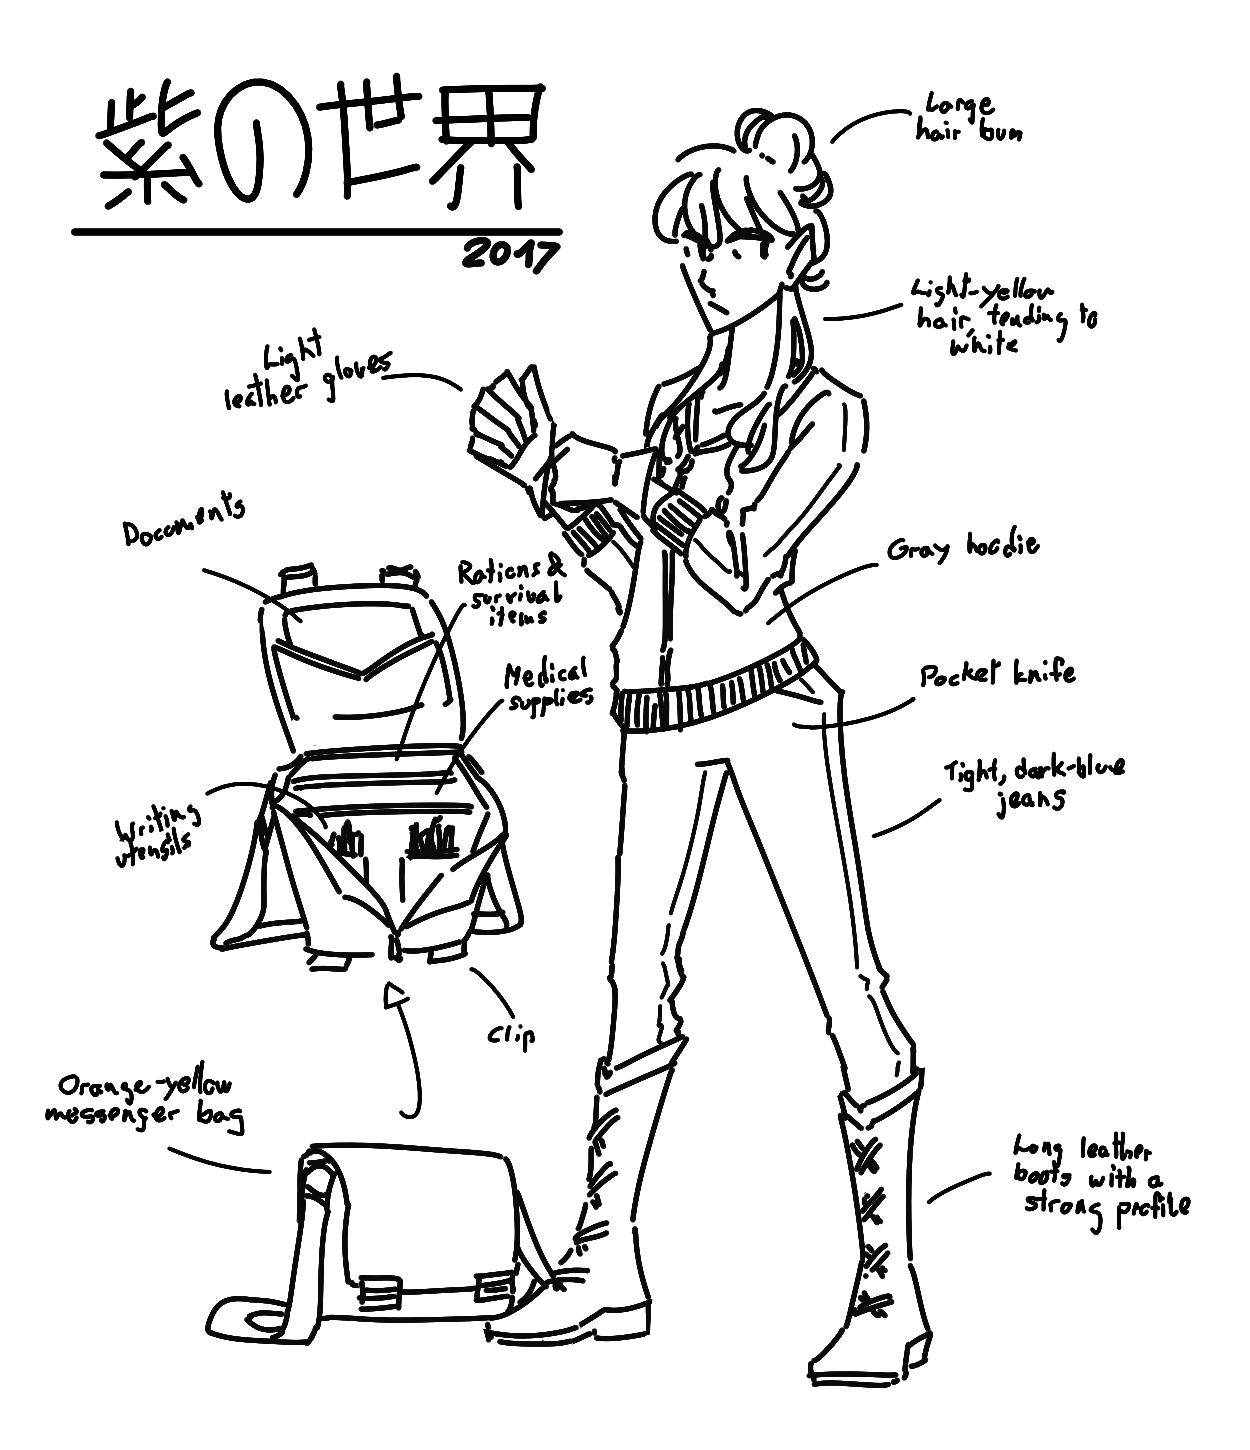 紫の世界
2017
Large
hair bun
Light-yellow
hair, tending to
white
Light
leather gloves
Documents
Rations &
survival
items
Gray hoodie
Medical
supplies
Pocket knife
Tight, dark-blue
jeans
Writing
utensils
Clip
Orange-yellow
messenger bag
Long leather
boots with a
strong profile